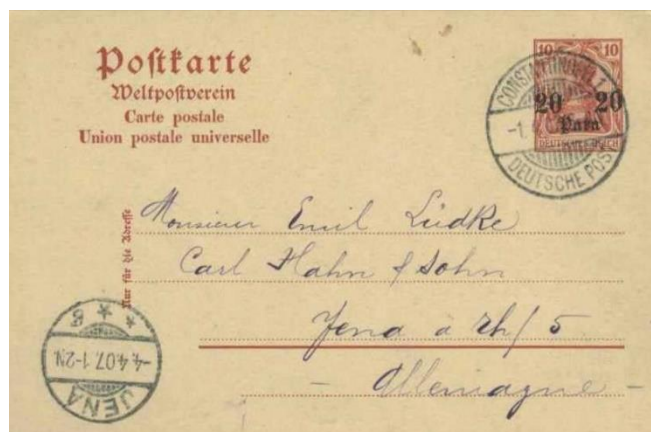 Postkarte
Weltpostverein
Carte postale
Union postale universelle
10 10
20 20
Para
DEUTSCHES REICH
CONSTANTINOPEL 1
DEUTSCHE POST
Nur für die Adresse
Monsieur Emil Lüdke
Carl Hahn & Sohn
Jena a
Allemagne
JENA
-4.4.07.1-2N.